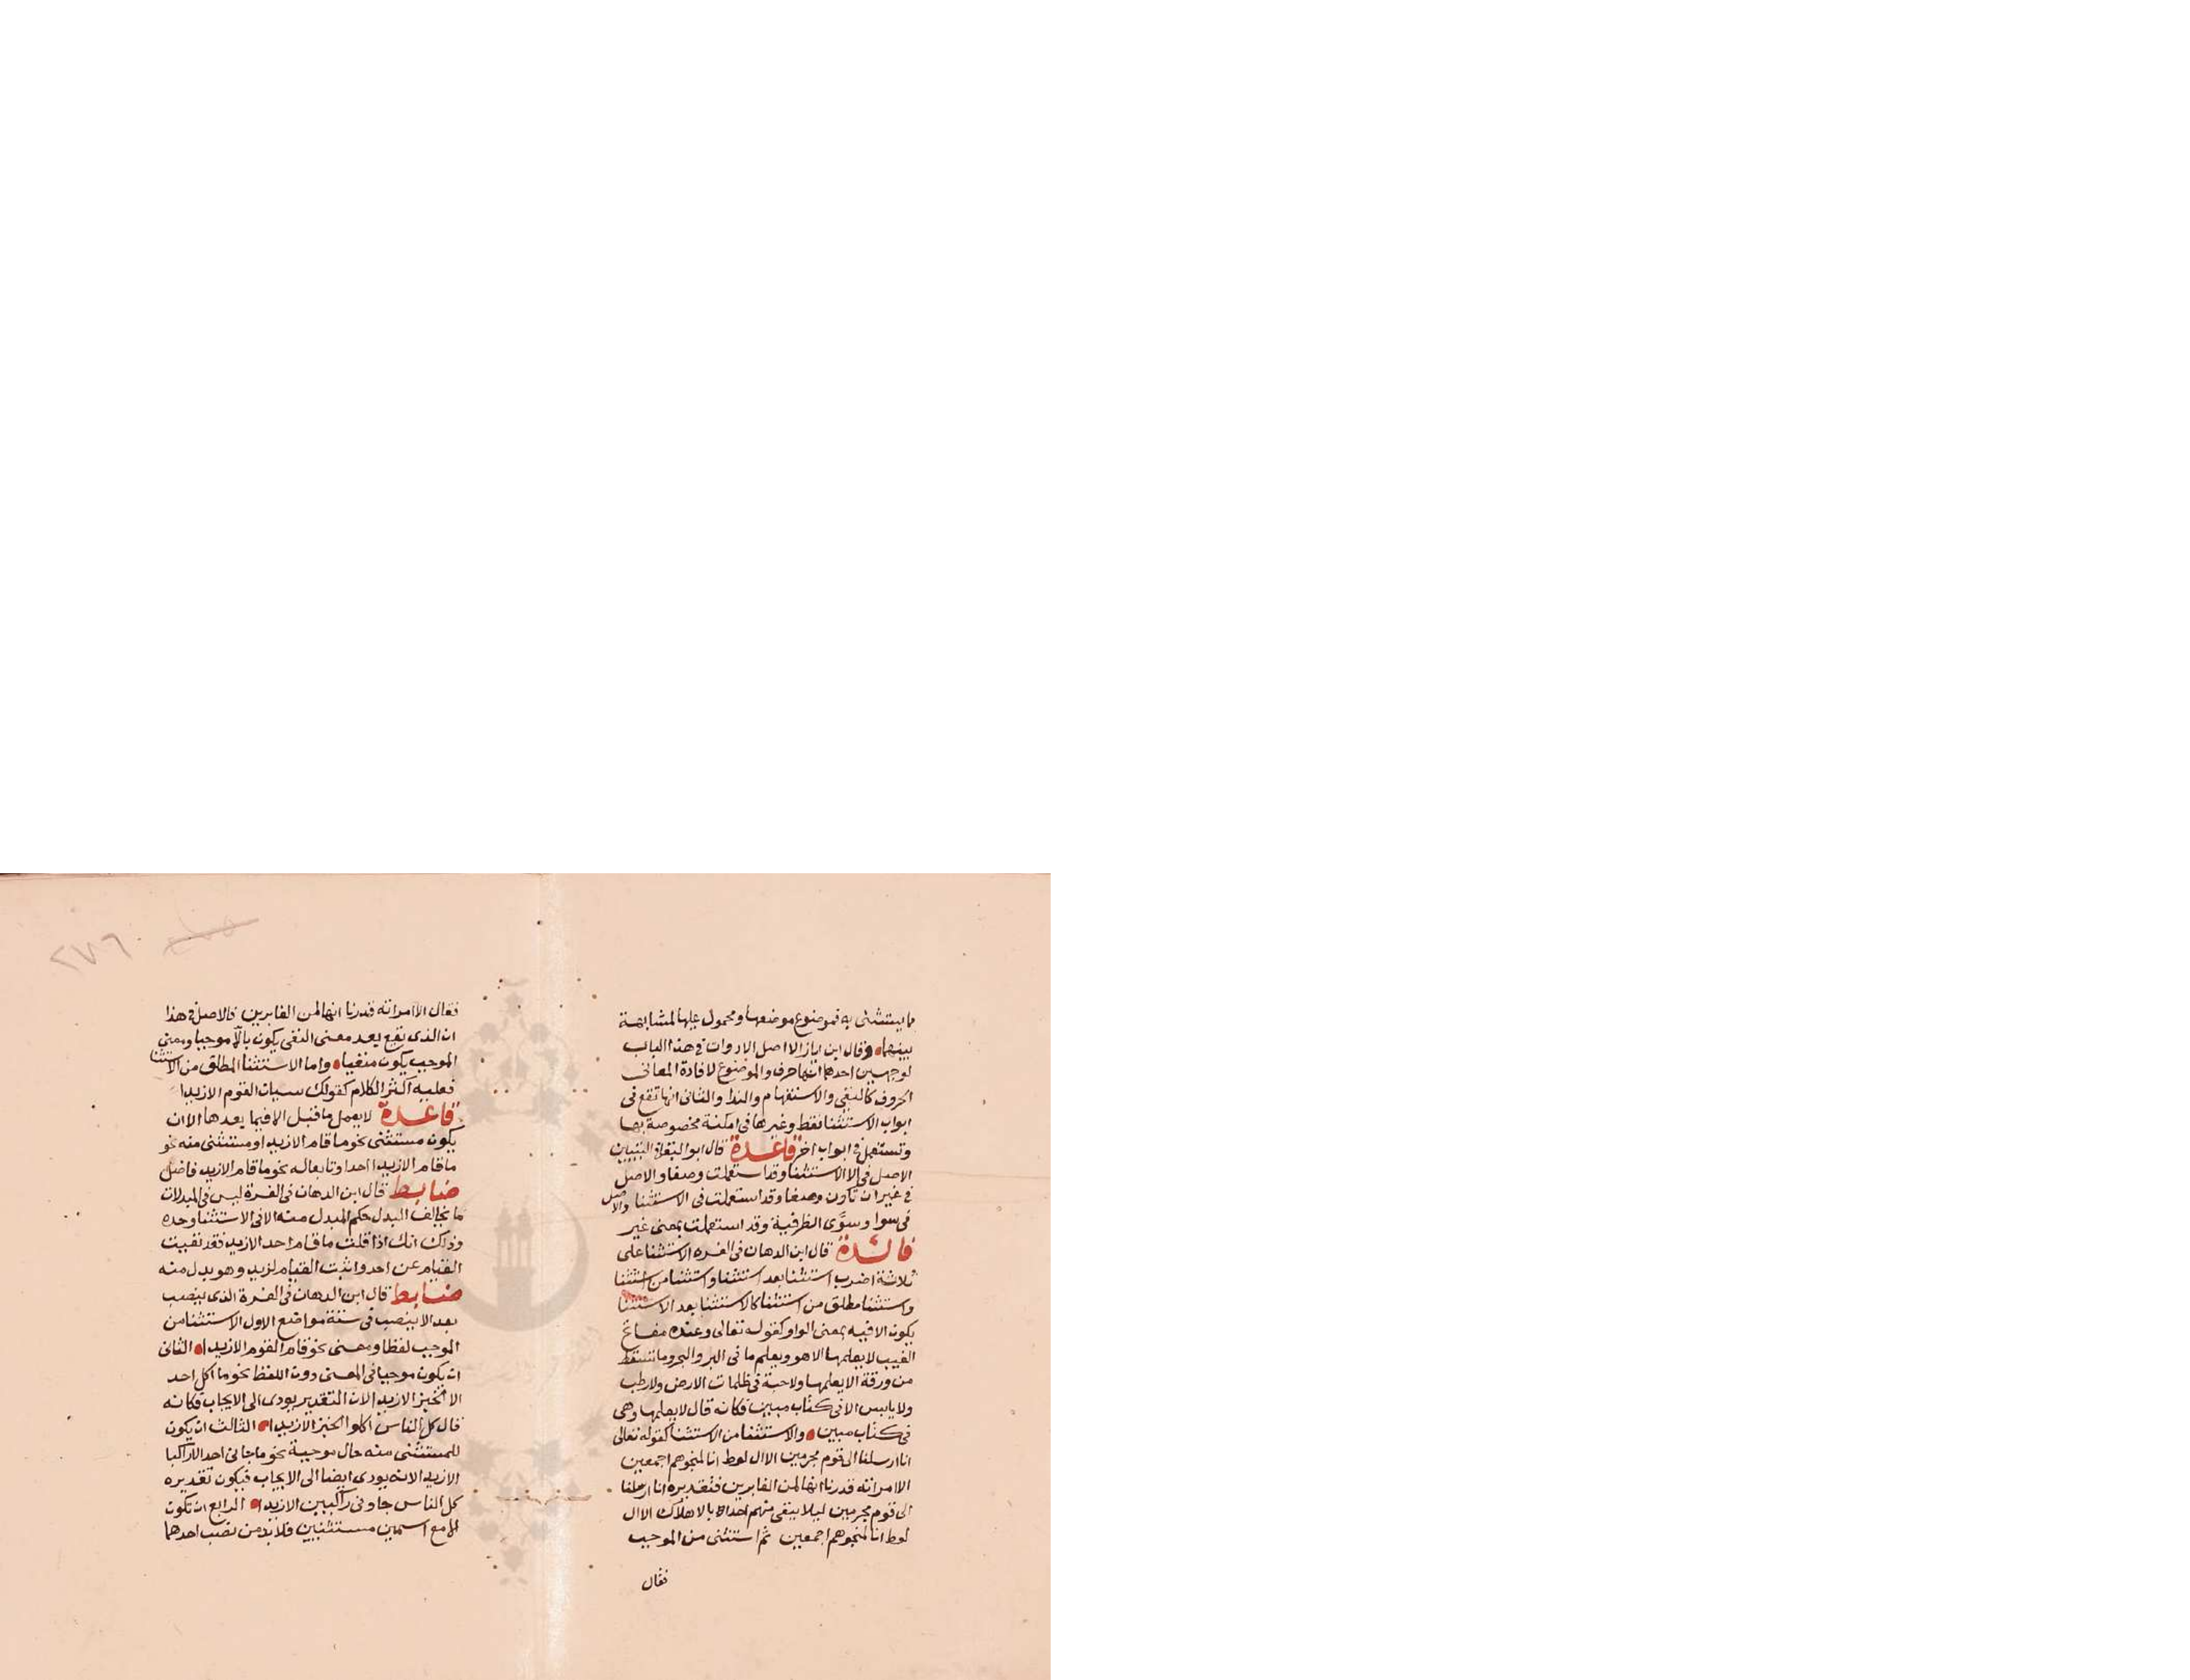 ما يستثنى به فموضوع موضعها ومحمول عليها لمشابهة
بينهما وقال ابن اياز الا اصل الادوات في هذا الباب
لوجهين احدهما انها حرف والموضوع لافادة المعاني
الحروف كالنفي والاستفهام والندا والثاني انها تقع في
ابواب الاستثنا فقط وغيرها في امكنة مخصوصة بها
وتستعمل في ابواب اخر قاعدة قال ابو البقا في التبيين
الاصل في الا الاستثنا وقد استعملت وصفا والاصل
في غير ان تكون وصفا وقد استعملت في الاستثنا والاصل
في سوا وسوى الظرفية وقد استعملت بمعنى غير
فائدة قال ابن الدهان في الغره الاستثنا على
ثلاثة اضرب استثنا بعد استثنا واستثنا من استثنا
واستثنا مطلق من استثنا كالاستثنا بعد الاستثنا
يكون الا فيه بمعنى الواو كقوله تعالى وعنده مفاتح
الغيب لا يعلمها الا هو ويعلم ما في البر والبحر وما تسقط
من ورقة الا يعلمها ولا حبة في ظلمات الارض ولا رطب
ولا يابس الا في كتاب مبين فكانه قال لا يعلمها وهي
في كتاب مبين والاستثنا من الاستثنا كقوله تعالى
انا ارسلنا الى قوم مجرمين الا ال لوط انا لمنجوهم اجمعين
الا امراته قدرنا انها لمن الغابرين فتقديره انا ارسلنا
الى قوم مجرمين ليلا يبقى منهم احدا بالاهلاك الا ال
لوط انا لمنجوهم اجمعين ثم استثنى من الموجب
فقال
٢٧٦
فقال الا امراته قدرنا انها لمن الغابرين فالاصل في هذا
ان الذي يقع بعد معنى النفي يكون بالا موجبا ومعنى
الموجب يكون منفيا واما الاستثنا المطلق من الاستثنا
فعليه اكثر الكلام كقولك سيان القوم الا زيدا
قاعدة لا يعمل ما قبل الا فيما بعدها الا ان
يكون مستثنى نحو ما قام الا زيد او مستثنى منه نحو
ما قام الا زيدا احد او تابعا له نحو ما قام الا زيد فاضل
ضابط قال ابن الدهان في الغرة ليس في المبدلات
ما يخالف البدل حكم المبدل منه الا في الاستثنا وحده
وذلك انك اذا قلت ما قام احد الا زيد فقد نفيت
القيام عن احد واثبت القيام لزيد وهو بدل منه
ضابط قال ابن الدهان في الغرة الذي ينصب
بعد الا ينصب في ستة مواضع الاول الاستثنا من
الموجب لفظا ومعنى نحو قام القوم الا زيدا الثاني
ان يكون موجبا في المعنى دون اللفظ نحو ما اكل احد
الا الخبز الا زيدا لان التقدير يودي الى الايجاب فكانه
قال كل الناس اكلوا الخبز الا زيدا الثالث ان يكون
للمستثنى منه حال موجبة نحو ما جاني احد الا راكبا
الا زيدا لانه يودي ايضا الى الايجاب فيكون تقديره
كل الناس جاوني راكبين الا زيدا الرابع ان تكون
الا مع اسمين مستثنيين فلا بد من نصب احدهما